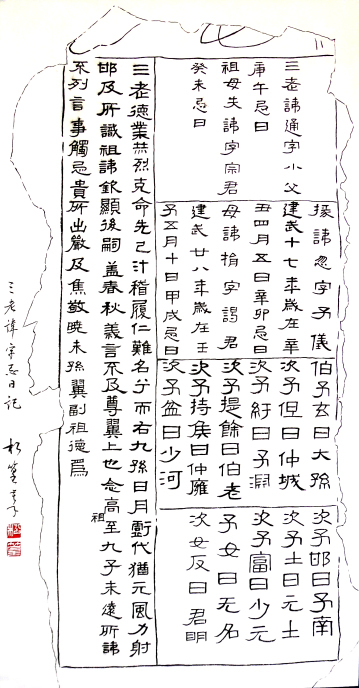 三老諱通字小父
庚午忌日
祖母失諱字宗君
癸未忌日
掾諱忽字子儀
建武十七年歲在辛
丑四月五日辛卯忌日
母諱捐字謁君
建武廿八年歲在壬
子五月十日甲戌忌日
伯子玄曰大孫
次子但曰仲城
次子紆曰子淵
次子提餘曰伯老
次子持侯曰仲雍
次子盆曰少河
次子邯曰子南
次子士曰元士
次子富曰少元
子女曰无名
次女反曰君明
三老德業赫烈克命先己汁稽履仁難名兮而右九孫日月虧代猶元風力射
邯及所識祖諱欽顯後嗣蓋春秋義言不及尊翼上也念高祖至九子未遠所諱
不列言事觸忌貴所出嚴及焦敬曉末孫冀副祖德焉
三老諱字忌日記